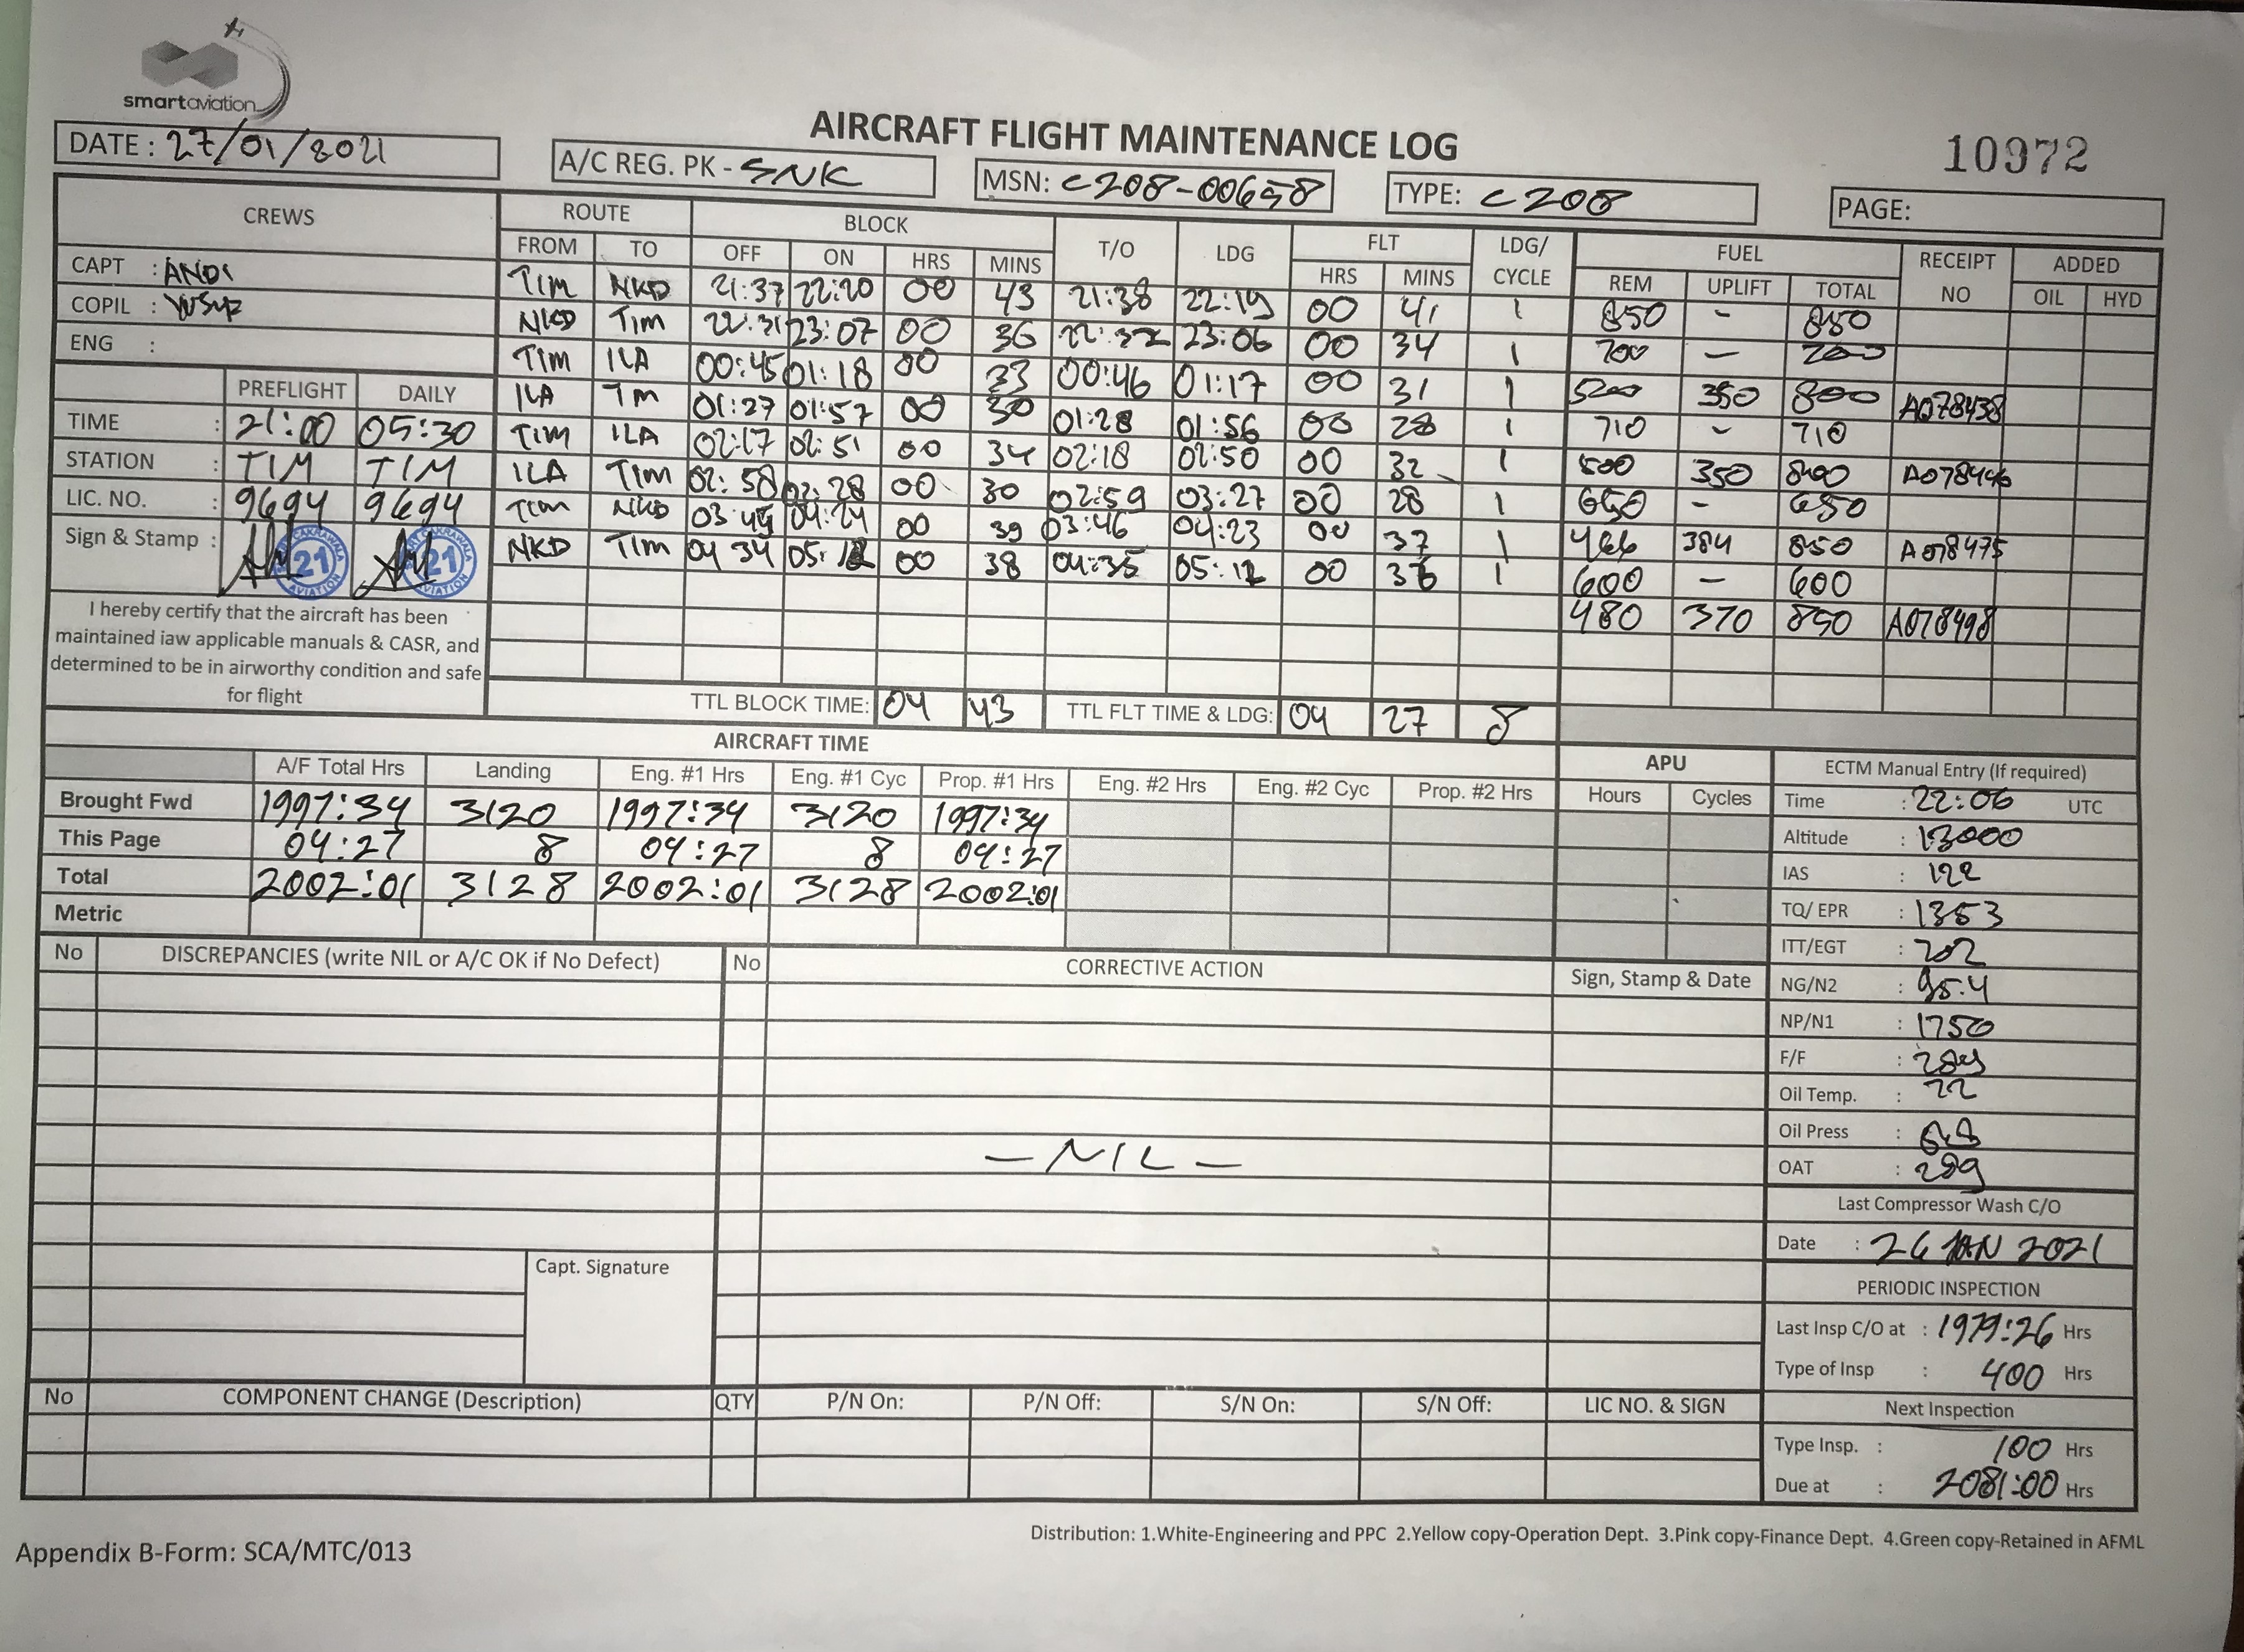 smartaviation
AIRCRAFT FLIGHT MAINTENANCE LOG
10972
DATE : 27/01/2021
A/C REG. PK - SNK
MSN: C208-00658
TYPE: C208
PAGE:
CREWS ROUTE BLOCK T/O LDG FLT LDG/ CYCLE FUEL RECEIPT NO ADDED
FROM TO OFF ON HRS MINS HRS MINS REM UPLIFT TOTAL OIL HYD
CAPT : ANDI
COPIL :
ENG :
TIM NKD 21:37 22:20 00 43 21:38 22:19 00 41 1 850 - 850
NKD TIM 22:31 23:07 00 36 22:32 23:06 00 34 1 700 - 700
TIM ILA 00:45 01:18 00 33 00:46 01:17 00 31 1 500 350 800 A078438
ILA TIM 01:27 01:57 00 30 01:28 01:56 00 28 1 710 - 710
TIM ILA 02:17 02:51 00 34 02:18 02:50 00 32 1 500 350 800 A078446
ILA TIM 02:58 03:28 00 30 02:59 03:27 00 28 1 650 - 650
TIM NKD 03:45 04:24 00 39 03:46 04:23 00 37 1 466 384 850 A078475
NKD TIM 04 34 05:12 00 38 04:35 05:12 00 36 1 600 - 600
480 370 850 A078498
PREFLIGHT DAILY
TIME : 21:00 05:30
STATION : TIM TIM
LIC. NO. : 9694 9694
Sign & Stamp :
21 21
AVIATION AVIATION
I hereby certify that the aircraft has been
maintained iaw applicable manuals & CASR, and
determined to be in airworthy condition and safe
for flight
TTL BLOCK TIME: 04 43 TTL FLT TIME & LDG: 04 27 8
AIRCRAFT TIME
A/F Total Hrs Landing Eng. #1 Hrs Eng. #1 Cyc Prop. #1 Hrs Eng. #2 Hrs Eng. #2 Cyc Prop. #2 Hrs
Brought Fwd 1997:34 3120 1997:34 3120 1997:34
This Page 04:27 8 04:27 8 04:27
Total 2002:01 3128 2002:01 3128 2002:01
Metric
APU
Hours Cycles
ECTM Manual Entry (If required)
Time : 22:06 UTC
Altitude : 13000
IAS : 122
TQ/ EPR : 1353
ITT/EGT : 702
NG/N2 : 95.4
NP/N1 : 1750
F/F :
Oil Temp. : 72
Oil Press :
OAT :
Last Compressor Wash C/O
Date : 26 JAN 2021
PERIODIC INSPECTION
Last Insp C/O at : 1979:26 Hrs
Type of Insp : 400 Hrs
Next Inspection
Type Insp. : 100 Hrs
Due at : 2081:00 Hrs
No DISCREPANCIES (write NIL or A/C OK if No Defect) No CORRECTIVE ACTION Sign, Stamp & Date
- NIL -
Capt. Signature
No COMPONENT CHANGE (Description) QTY P/N On: P/N Off: S/N On: S/N Off: LIC NO. & SIGN
Distribution: 1.White-Engineering and PPC 2.Yellow copy-Operation Dept. 3.Pink copy-Finance Dept. 4.Green copy-Retained in AFML
Appendix B-Form: SCA/MTC/013